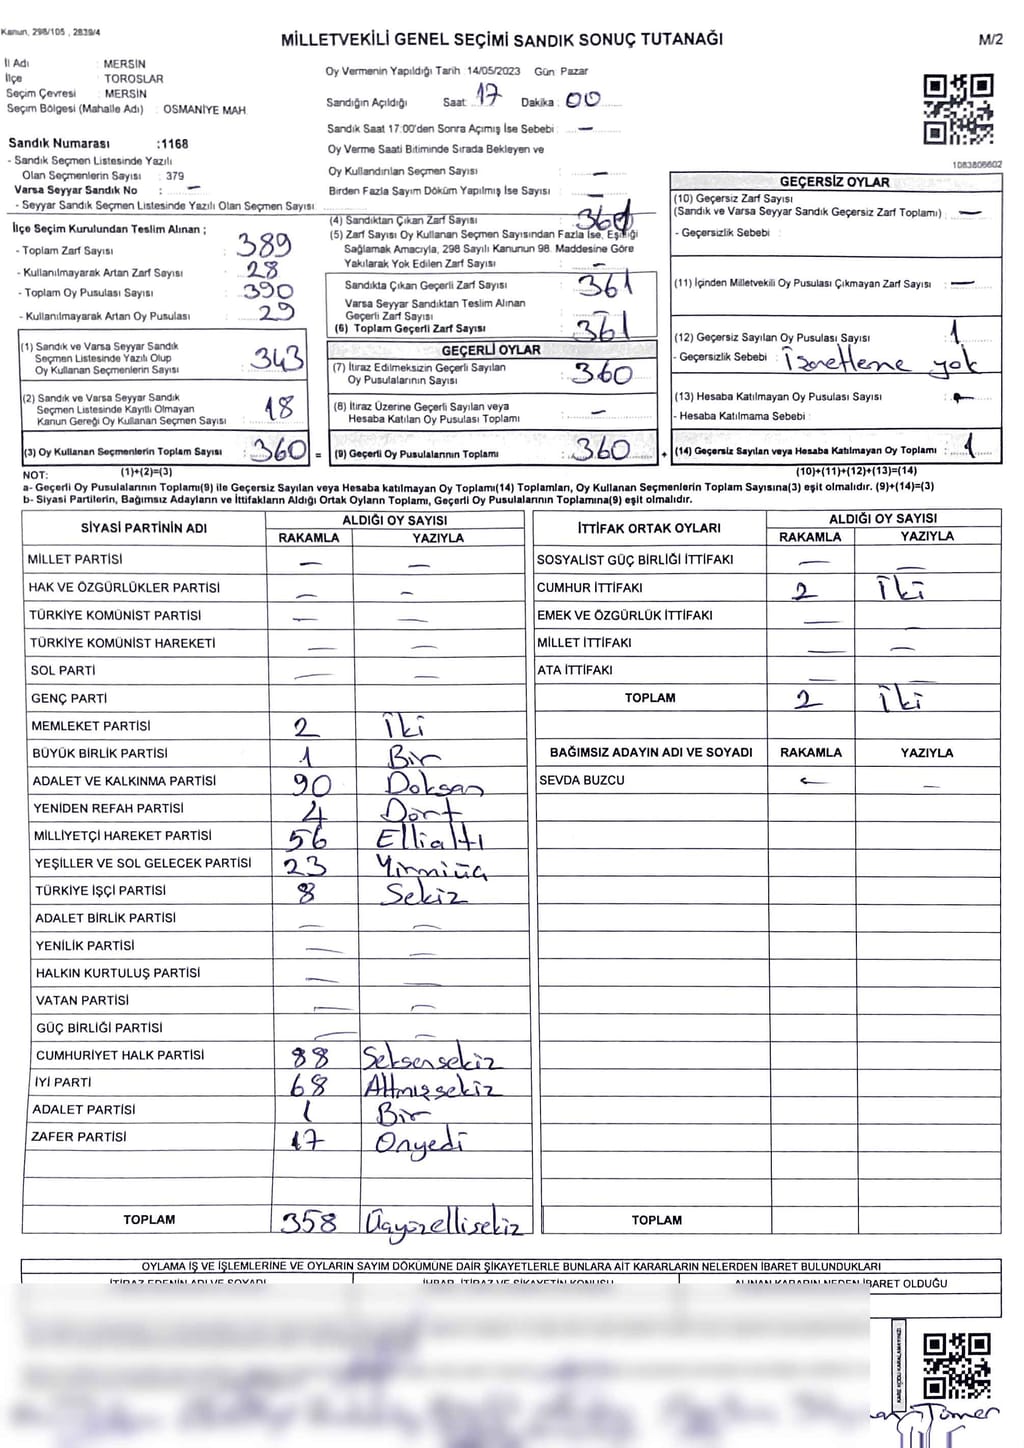 Kanun, 298/105 , 2839/4
MİLLETVEKİLİ GENEL SEÇİMİ SANDIK SONUÇ TUTANAĞI
M/2
İl Adı : MERSİN
İlçe : TOROSLAR
Seçim Çevresi : MERSİN
Seçim Bölgesi (Mahalle Adı) : OSMANİYE MAH
Sandık Numarası :1168
- Sandık Seçmen Listesinde Yazılı
Olan Seçmenlerin Sayısı : 379
Varsa Seyyar Sandık No : —
- Seyyar Sandık Seçmen Listesinde Yazılı Olan Seçmen Sayısı:
Oy Vermenin Yapıldığı Tarih 14/05/2023 Gün Pazar
Sandığın Açıldığı Saat: 17 Dakika : 00
Sandık Saat 17:00'den Sonra Açımış İse Sebebi : —
Oy Verme Saati Bitiminde Sırada Bekleyen ve
Oy Kullandırılan Seçmen Sayısı : —
Birden Fazla Sayım Döküm Yapılmış İse Sayısı : —
1083806602
İlçe Seçim Kurulundan Teslim Alınan ;
- Toplam Zarf Sayısı : 389
- Kullanılmayarak Artan Zarf Sayısı : 28
- Toplam Oy Pusulası Sayısı : 390
- Kullanılmayarak Artan Oy Pusulası : 29
(1) Sandık ve Varsa Seyyar Sandık
Seçmen Listesinde Yazılı Olup
Oy Kullanan Seçmenlerin Sayısı : 343
(2) Sandık ve Varsa Seyyar Sandık
Seçmen Listesinde Kayıtlı Olmayan
Kanun Gereği Oy Kullanan Seçmen Sayısı : 18
(3) Oy Kullanan Seçmenlerin Toplam Sayısı : 360 =
(4) Sandıktan Çıkan Zarf Sayısı : 361
(5) Zarf Sayısı Oy Kullanan Seçmen Sayısından Fazla İse, Eşitliği
Sağlamak Amacıyla, 298 Sayılı Kanunun 98. Maddesine Göre
Yakılarak Yok Edilen Zarf Sayısı : —
Sandıkta Çıkan Geçerli Zarf Sayısı : 361
Varsa Seyyar Sandıktan Teslim Alınan
Geçerli Zarf Sayısı : —
(6) Toplam Geçerli Zarf Sayısı : 361
GEÇERLİ OYLAR
(7) İtiraz Edilmeksizin Geçerli Sayılan
Oy Pusulalarının Sayısı : 360
(8) İtiraz Üzerine Geçerli Sayılan veya
Hesaba Katılan Oy Pusulası Toplamı : —
(9) Geçerli Oy Pusulalarının Toplamı : 360 +
GEÇERSİZ OYLAR
(10) Geçersiz Zarf Sayısı
(Sandık ve Varsa Seyyar Sandık Geçersiz Zarf Toplamı) : —
- Geçersizlik Sebebi :
(11) İçinden Milletvekili Oy Pusulası Çıkmayan Zarf Sayısı : —
(12) Geçersiz Sayılan Oy Pusulası Sayısı : 1
- Geçersizlik Sebebi : İşaretleme yok
(13) Hesaba Katılmayan Oy Pusulası Sayısı : —
- Hesaba Katılmama Sebebi :
(14) Geçersiz Sayılan veya Hesaba Katılmayan Oy Toplamı : 1
NOT: (1)+(2)=(3) (10)+(11)+(12)+(13)=(14)
a- Geçerli Oy Pusulalarının Toplamı(9) ile Geçersiz Sayılan veya Hesaba katılmayan Oy Toplamı(14) Toplamları, Oy Kullanan Seçmenlerin Toplam Sayısına(3) eşit olmalıdır. (9)+(14)=(3)
b- Siyasi Partilerin, Bağımsız Adayların ve İttifakların Aldığı Ortak Oyların Toplamı, Geçerli Oy Pusulalarının Toplamına(9) eşit olmalıdır.
SİYASİ PARTİNİN ADI ALDIĞI OY SAYISI
RAKAMLA YAZIYLA
MİLLET PARTİSİ — —
HAK VE ÖZGÜRLÜKLER PARTİSİ — —
TÜRKİYE KOMÜNİST PARTİSİ — —
TÜRKİYE KOMÜNİST HAREKETİ — —
SOL PARTİ — —
GENÇ PARTİ
MEMLEKET PARTİSİ 2 İki
BÜYÜK BİRLİK PARTİSİ 1 Bir
ADALET VE KALKINMA PARTİSİ 90 Doksan
YENİDEN REFAH PARTİSİ 4 Dört
MİLLİYETÇİ HAREKET PARTİSİ 56 Ellialtı
YEŞİLLER VE SOL GELECEK PARTİSİ 23 Yirmiüç
TÜRKİYE İŞÇİ PARTİSİ 8 Sekiz
ADALET BİRLİK PARTİSİ — —
YENİLİK PARTİSİ — —
HALKIN KURTULUŞ PARTİSİ — —
VATAN PARTİSİ — —
GÜÇ BİRLİĞİ PARTİSİ — —
CUMHURİYET HALK PARTİSİ 88 Seksensekiz
İYİ PARTİ 68 Altmışsekiz
ADALET PARTİSİ 1 Bir
ZAFER PARTİSİ 17 Onyedi
TOPLAM 358 Üçyüzellisekiz
İTTİFAK ORTAK OYLARI ALDIĞI OY SAYISI
RAKAMLA YAZIYLA
SOSYALİST GÜÇ BİRLİĞİ İTTİFAKI — —
CUMHUR İTTİFAKI 2 İki
EMEK VE ÖZGÜRLÜK İTTİFAKI — —
MİLLET İTTİFAKI — —
ATA İTTİFAKI — —
TOPLAM 2 İki
BAĞIMSIZ ADAYIN ADI VE SOYADI RAKAMLA YAZIYLA
SEVDA BUZCU — —
TOPLAM
OYLAMA İŞ VE İŞLEMLERİNE VE OYLARIN SAYIM DÖKÜMÜNE DAİR ŞİKAYETLERLE BUNLARA AİT KARARLARIN NELERDEN İBARET BULUNDUKLARI
İTİRAZ EDENİN ADI VE SOYADI İHBAR, İTİRAZ VE ŞİKAYETİN KONUSU ALINAN KARARIN NEDEN İBARET OLDUĞU
KARE KODU KARALAMAYINIZ!
Tümer